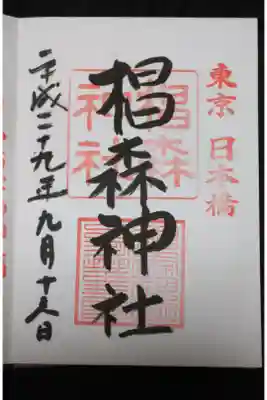 東京 日本橋
椙森神社
椙森
神社
平成二十九年九月十八日